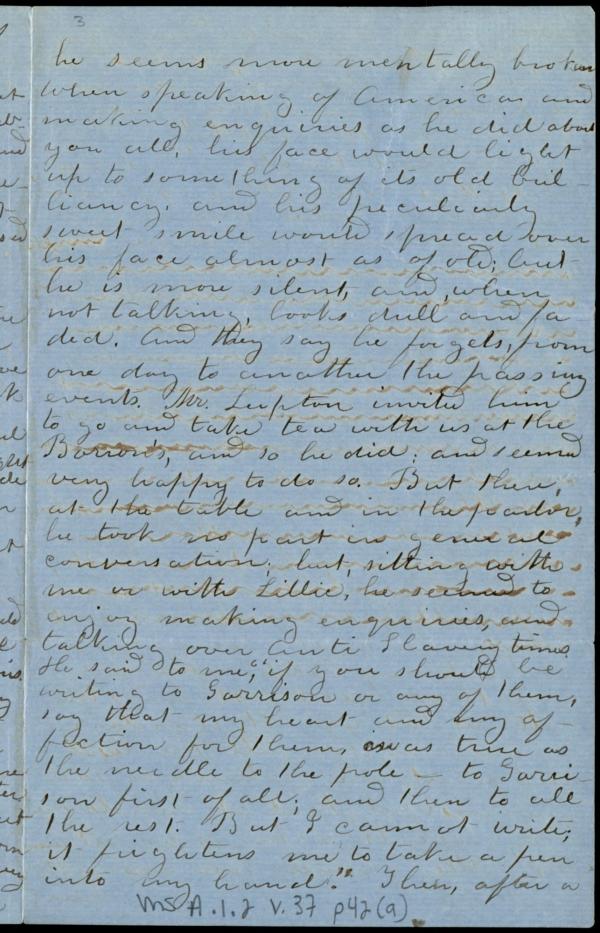 3
he seems more mentally broken
when speaking of America and
making enquiries as he did about
you all, his face would light
up to something of its old bril-
liancy. and his peculiarly
sweet smile would spread over
his face almost as of old; but
he is more silent, and, when
not talking, looks dull and fa
ded. And they say he forgets, from
one day to another the passing
events. Mr. Lupton invited him
to go and take tea with us at the
Barron's, and so he did; and seemed
very happy to do so. But there,
at the table and in the parlor,
he took no part in general
conversation; but, sitting with
me or with Lillie, he seemed to
enjoy making enquiries, and
talking over Anti Slavery times.
He said to me, "if you should be
writing to Garrison or any of them,
say that my heart and my af-
fection for them, is as true as
the needle to the pole — to Garri-
son first of all; and then to all
the rest. But I cannot write;
it frightens me to take a pen
into my hand." Then, after a
MS A.1.2 V.37 p42(a)